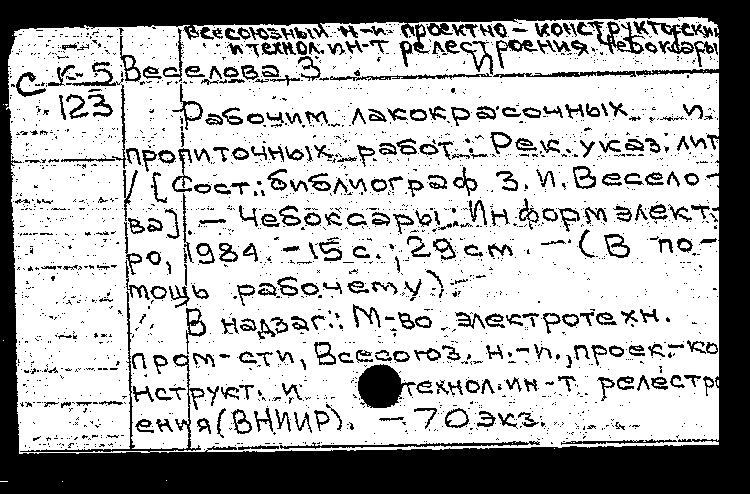 Всесоюзный н-и проектно-конструкторский
и технол. ин-т релестроения. Чебоксары
С К-5 Веселова, З. И
123
Рабочим лакокрасочных и
пропиточных работ: Рек. указ. лит
/ [Сост.: библиограф З. И. Весело-
ва]. — Чебоксары: Информэлект-
ро, 1984. - 15 с.; 29 см. — (В по-
мощь рабочему).
В надзаг.: М-во электротехн.
пром-сти, Всесоюз. н.-и., проек.-ко
нструкт. и технол. ин-т релестро
ения (ВНИИР). — 70 экз.